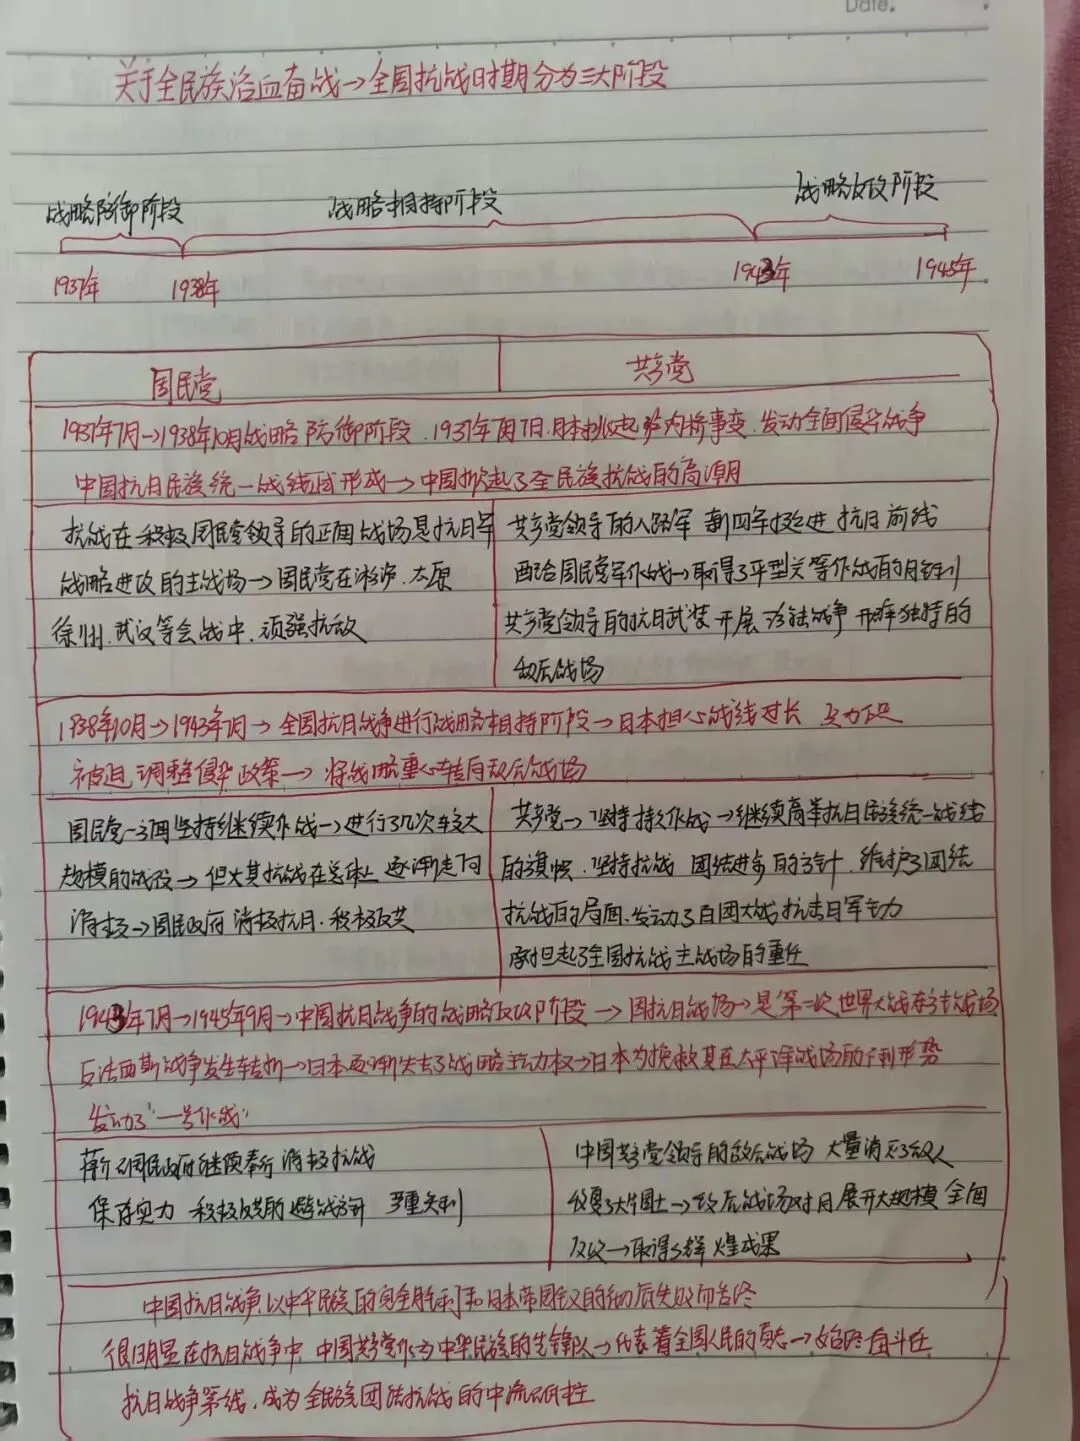 Date.
关于全民族浴血奋战→全国抗战时期分为三大阶段
战略防御阶段 战略相持阶段 战略反攻阶段
1937年 1938年 1943年 1945年
国民党 共产党
1937年7月→1938年10月战略防御阶段.1937年7月7日.日本挑起 事变.发动全面侵华战争
中国抗日民族统一战线 形成→中国掀起了全民族抗战的高潮
抗战在 积极国民党领导的正面战场是抗日军
战略进攻的主战场→国民党在淞沪.太原
徐州.武汉等会战中.顽强抗敌
共产党领导的八路军 新四军挺进 抗日前线
配合国民党军作战→取得了平型关等作战的胜利
共产党领导的抗日武装开展 战争 开辟独特的
敌后战场
1938年10月→1943年7月→全国抗日战争进行战略相持阶段→日本担心战线过长 兵力
被迫调整侵华政策→将战略重心转向敌后战场
国民党一方面坚持继续作战→进行了几次较大
规模的战役→但 其抗战在总体上逐渐走向
消极→国民政府消极抗日.积极反共
共产党→坚持持久作战→继续高举抗日民族统一战线
的旗帜.坚持抗战 团结进步的方针.维护了团结
抗战的局面.发动了百团大战 抗击日军主力
承担起了全国抗战主战场的重任
1943年7月→1945年9月→中国抗日战争的战略反攻阶段→ 抗日战场→是第二次世界大战东方主战场
反法西斯战争发生转折→日本逐渐失去了战略主动权→日本为挽救其在太平洋战场的不利形势
发动了"一号作战"
蒋 国民政府继续奉行消极抗战
保存实力 积极反共的避战方针 失利
中国共产党领导的敌后战场 大量消灭了敌人
收复了大片国土→敌后战场对日展开大规模 全面
反攻→取得了辉煌成果
中国抗日战争.以中华民族的完全胜利和日本帝国主义的彻底失败而告终
很明显在抗日战争中.中国共产党作为中华民族的先锋队→代表着全国人民的意志→始终奋斗在
抗日战争第一线.成为全民族团结抗战的中流砥柱